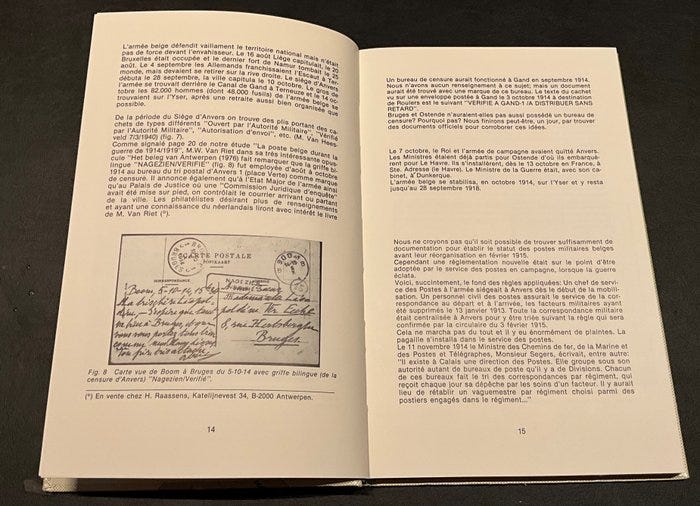 L'armée belge défendit vaillament le territoire national mais n'était
pas de force devant l'envahisseur. Le 16 août Liège capitulait, le 20
Bruxelles était occupée et le dernier fort de Namur tombait le 25
août. Le 4 septembre les Allemands franchissaient l'Escaut à Ter-
monde, mais devaient se retirer sur la rive droite. Le siège d'Anvers
débuta le 28 septembre, la ville capitula le 10 octobre. Le gros de
l'armée se trouvait derrière le Canal de Gand à Terneuze et le 14 oc-
tobre les 82.000 hommes (dont 48.000 fusils) de l'armée belge se
trouvaient sur l'Yser, après une retraite aussi bien organisée que
possible.
De la période du Siège d'Anvers on trouve des plis portant des ca-
chets de types différents "Ouvert par l'Autorité Militaire", "Vérifié
par l'Autorité Militaire", "Autorisation d'envoi", etc. (M. Van Hees-
veld 7/3/1940) (fig. 7).
Comme signalé page 20 de notre étude "La poste belge durant la
guerre de 1914/1919", M.W. Van Riet dans sa très intéressante opus-
cule "Het beleg van Antwerpen (1976) fait remarquer que la griffe bi-
lingue "NAGEZIEN/VERIFIE" (fig. 8) fut employée d'août à octobre
1914 au bureau du tri postal d'Anvers 1 (place Verte) comme marque
de censure. Il annonce également qu'à l'Etat Major de l'armée ainsi
qu'au Palais de Justice où une "Commission Juridique d'enquête"
avait été mise sur pied, on contrôlait le courrier arrivant ou partant
de la ville. Les philatélistes désirant plus de renseignements
et ayant une connaissance du néerlandais liront avec intérêt le livre
de M. Van Riet (⁹).
CARTE POSTALE
POSTKAART
CORRESPONDANCE
NAGEZIEN
BOOM
Boom, 5-10-14
Mademoiselle
Bruges.
Fig. 8 Carte vue de Boom à Bruges du 5-10-14 avec griffe bilingue (de
la censure d'Anvers) "Nagezien/Verifié".
(⁹) En vente chez H. Raassens, Katelijnevest 34, B-2000 Antwerpen.
14
Un bureau de censure aurait fonctionné à Gand en septembre 1914.
Nous n'avons aucun renseignement à ce sujet; mais un document
aurait été trouvé avec une marque de ce bureau. Le texte du cachet
vu sur une enveloppe postée à Gand le 3 octobre 1914 à destination
de Roulers est le suivant "VERIFIE A GAND-1 /A DISTRIBUER SANS
RETARD".
Bruges et Ostende n'auraient-elles pas aussi possédé un bureau de
censure? Pourquoi pas? Nous finirons peut-être, un jour, par trouver
des documents officiels pour corroborer ces idées.
Le 7 octobre, le Roi et l'armée de campagne avaient quitté Anvers.
Les Ministres étaient déjà partis pour Ostende d'où ils embarquè-
rent pour Le Havre. Ils s'installèrent, dès le 13 octobre en France, à
Ste. Adresse (le Havre). Le Ministre de la Guerre était, avec son ca-
binet, à Dunkerque.
L'armée belge se stabilisa, en octobre 1914, sur l'Yser et y resta
jusqu'au 28 septembre 1918.
Nous ne croyons pas qu'il soit possible de trouver suffisamment de
documentation pour établir le statut des postes militaires belges
avant leur réorganisation en février 1915.
Cependant une réglementation nouvelle était sur le point d'être
adoptée par le service des postes en campagne, lorsque la guerre
éclata.
Voici, succinctement, le fond des règles appliquées: Un chef de service
des Postes à l'armée siégeait à Anvers dès le début de la mobili-
sation. Un personnel civil des postes assurait le service de la cor-
respondance au départ et à l'arrivée, les facteurs militaires ayant
été supprimés le 13 janvier 1913. Toute la correspondance militaire
était centralisée à Anvers pour y être triée suivant la règle qui sera
confirmée par la circulaire du 3 février 1915.
Cela ne marcha pas du tout et il y eu énormément de plaintes. La
pagaille s'installa dans le service des postes.
Le 11 novembre 1914 le Ministre des Chemins de fer, de la Marine et
des Postes et Télégraphes, Monsieur Segers, écrivait, entre autre:
"Il existe à Calais une direction des Postes. Elle groupe sous son
autorité autant de bureaux de poste qu'il y a de Divisions. Chacun
de ces bureaux fait le tri des correspondances par régiment, qui
reçoit chaque jour sa dépêche par les soins d'un facteur. Il y aurait
lieu de rétablir un vaguemestre par régiment choisi parmi des
postiers engagés dans le régiment..."
15